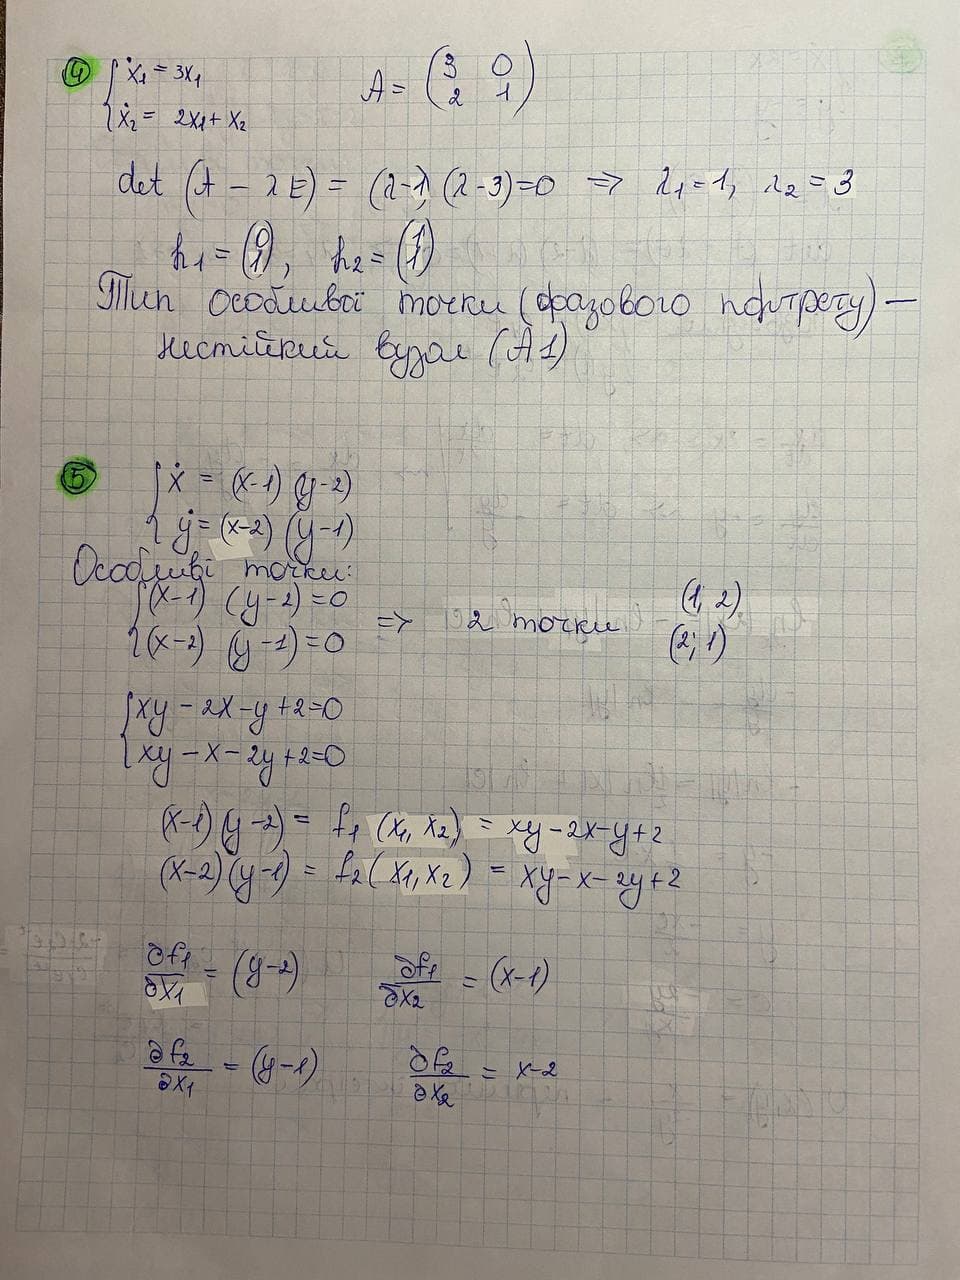 4 { ẋ₁ = 3x₁
ẋ₂ = 2x₁ + x₂
A = (3 0
2 1)
det (A - λE) = (λ-1) (λ-3) = 0 => λ₁ = 1, λ₂ = 3
h₁ = (0 1), h₂ = (1 1)
Тип особливої точки (фазового портрету) —
нестійкий вузол (A1)
5 { ẋ = (x-1) (y-2)
ẏ = (x-2) (y-1)
Особливі точки:
{ (x-1) (y-2) = 0
(x-2) (y-1) = 0
=> 2 точки
(1; 2)
(2; 1)
{ xy - 2x - y + 2 = 0
xy - x - 2y + 2 = 0
(x-1) (y-2) = f₁ (x₁, x₂) = xy - 2x - y + 2
(x-2) (y-1) = f₂ (x₁, x₂) = xy - x - 2y + 2
∂f₁/∂x₁ = (y-2) ∂f₁/∂x₂ = (x-1)
∂f₂/∂x₁ = (y-1) ∂f₂/∂x₂ = x-2